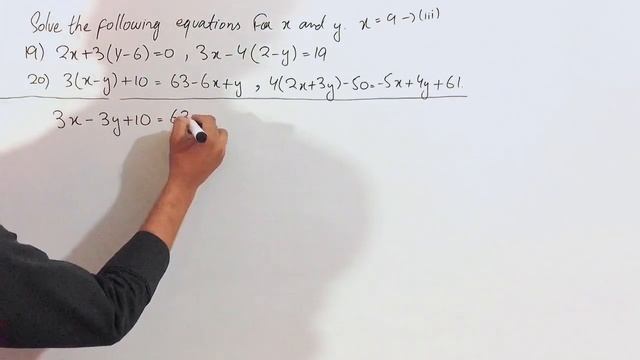 Solve the following equations for x and y. x = 9 → (iii)
19) 2x+3(y-6)=0 , 3x-4(2-y)=19
20) 3(x-y)+10 = 63-6x+y , 4(2x+3y)-50=-5x+4y+61.
3x-3y+10=63